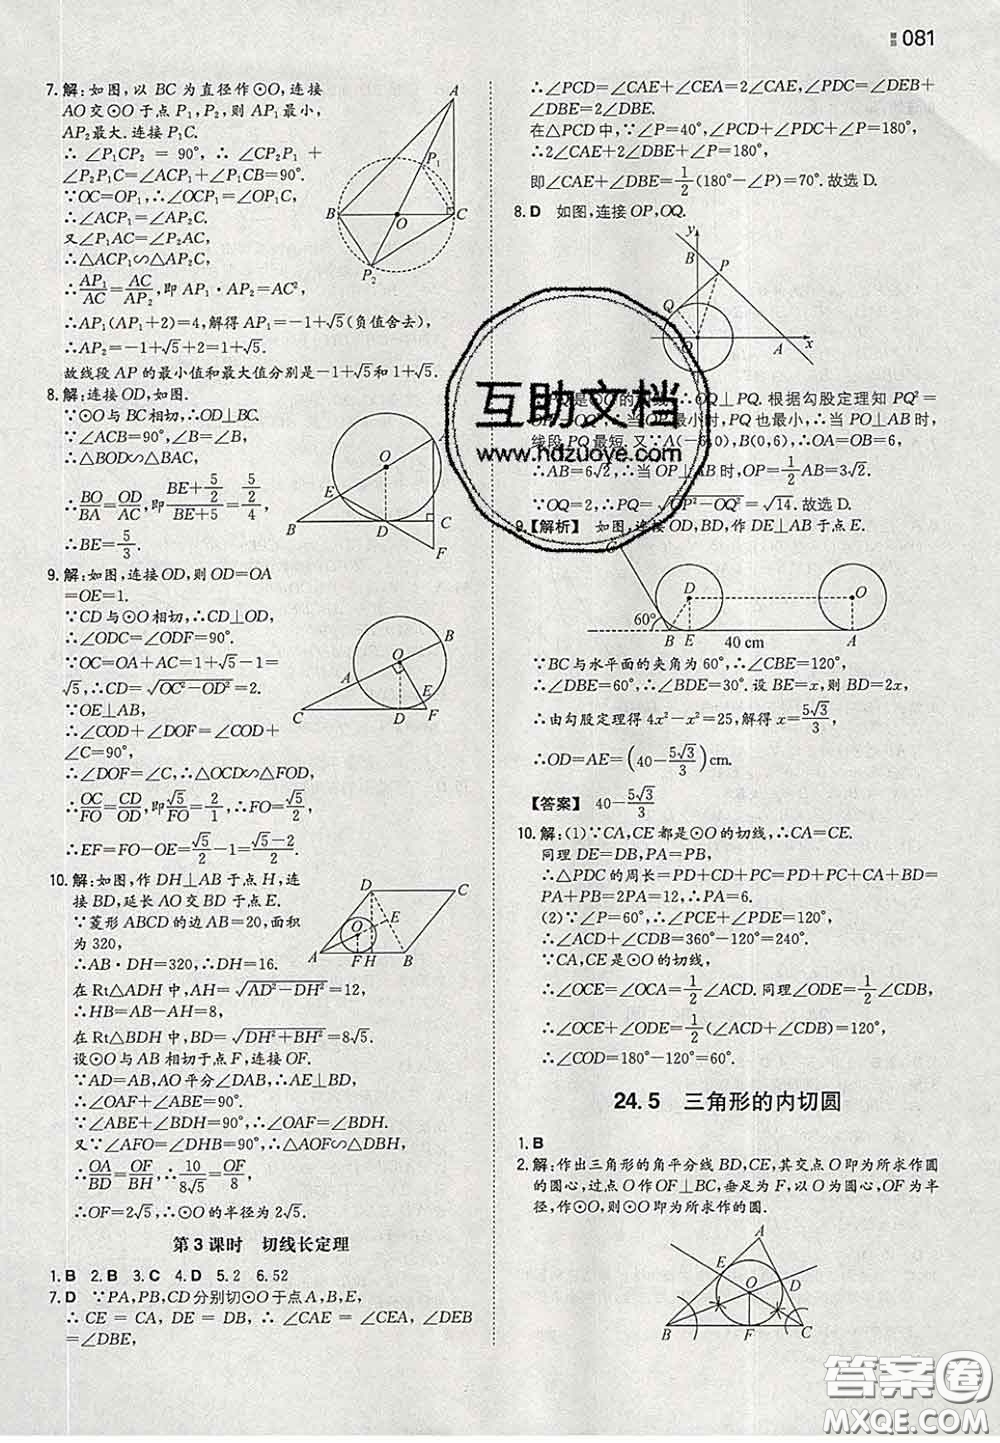 081
7.解:如图,以BC为直径作⊙O,连接
AO交⊙O于点P₁,P₂,则AP₁最小,
AP₂最大.连接P₁C.
∴∠P₁CP₂=90°,∴∠CP₂P₁+
∠P₂P₁C=∠ACP₁+∠P₁CB=90°.
∵OC=OP₁,∴∠OCP₁=∠OP₁C,
∴∠ACP₁=∠AP₂C.
又∠P₁AC=∠CAP₂,
∴△ACP₁∽△AP₂C,
∴AP₁/AC=AC/AP₂,即AP₁·AP₂=AC²,
∴AP₁(AP₁+2)=4,解得AP₁=-1+√5(负值舍去),
∴AP₂=-1+√5+2=1+√5.
故线段AP的最小值和最大值分别是-1+√5和1+√5.
8.解:连接OD,如图.
∵⊙O与BC相切,∴OD⊥BC.
∵∠ACB=90°,∴OD∥AC,
∴△BOD∽△BAC,
∴BO/BA=OD/AC,即(BE+5/2)/(BE+5)=(5/2)/4,
∴BE=5/3.
9.解:如图,连接OD,则OD=OA
=OE=1.
∵CD与⊙O相切,∴CD⊥OD,
∴∠ODC=∠ODF=90°.
∵OC=OA+AC=1+√5-1=
√5,∴CD=√(OC²-OD²)=2.
∵OE⊥AB,
∴∠COD+∠DOF=∠COD+
∠C=90°,
∴∠DOF=∠C,∴△OCD∽△FOD,
∴OC/FO=CD/OD,即√5/FO=2/1,∴FO=√5/2,
∴EF=FO-OE=√5/2-1=(√5-2)/2.
10.解:如图,作DH⊥AB于点H,连
接BD,延长AO交BD于点E.
∵菱形ABCD的边AB=20,面积
为320,
∴AB·DH=320,∴DH=16.
在Rt△ADH中,AH=√(AD²-DH²)=12,
∴HB=AB-AH=8,
在Rt△BDH中,BD=√(DH²+BH²)=8√5.
设⊙O与AB相切于点F,连接OF.
∵AD=AB,AO平分∠DAB,∴AE⊥BD,
∴∠OAF+∠ABE=90°.
∵∠ABE+∠BDH=90°,∴∠OAF=∠BDH.
又∵∠AFO=∠DHB=90°,∴△AOF∽△DBH,
∴OA/BD=OF/BH,∴10/(8√5)=OF/8,
∴OF=2√5,∴⊙O的半径为2√5.
第3课时 切线长定理
1.B 2.B 3.C 4.D 5.2 6.52
7.D ∵PA,PB,CD分别切⊙O于点A,B,E,
∴CE=CA,DE=DB,∴∠CAE=∠CEA,∠DEB
=∠DBE,
∴∠PCD=∠CAE+∠CEA=2∠CAE,∠PDC=∠DEB+
∠DBE=2∠DBE.
在△PCD中,∵∠P=40°,∠PCD+∠PDC+∠P=180°,
∴2∠CAE+2∠DBE+∠P=180°,
即∠CAE+∠DBE=1/2(180°-∠P)=70°.故选D.
8.D 如图,连接OP,OQ.
的 ∴OQ⊥PQ.根据勾股定理知PQ²=
最小时,PQ也最小,当PO⊥AB时,
线段PQ最短.又∵A(-6,0),B(0,6),∴OA=OB=6,
∴AB=6√2,∴当OP⊥AB时,OP=1/2AB=3√2.
∵OQ=2,∴PQ=√(OP²-OQ²)=√14.故选D.
9.【解析】 如图,连接OD,BD,作DE⊥AB于点E.
∵BC与水平面的夹角为60°,∴∠CBE=120°,
∴∠DBE=60°,∴∠BDE=30°.设BE=x,则BD=2x,
∴由勾股定理得4x²-x²=25,解得x=5√3/3,
∴OD=AE=(40-5√3/3)cm.
【答案】 40-5√3/3
10.解:(1)∵CA,CE都是⊙O的切线,∴CA=CE.
同理DE=DB,PA=PB,
∴△PDC的周长=PD+CD+PC=PD+PC+CA+BD=
PA+PB=2PA=12,∴PA=6.
(2)∵∠P=60°,∴∠PCE+∠PDE=120°,
∴∠ACD+∠CDB=360°-120°=240°.
∵CA,CE是⊙O的切线,
∴∠OCE=∠OCA=1/2∠ACD.同理∠ODE=1/2∠CDB,
∴∠OCE+∠ODE=1/2(∠ACD+∠CDB)=120°,
∴∠COD=180°-120°=60°.
24.5 三角形的内切圆
1.B
2.解:作出三角形的角平分线BD,CE,其交点O即为所求作圆
的圆心,过点O作OF⊥BC,垂足为F,以O为圆心,OF为半
径,作⊙O,即为所求作的圆.
60° 40 cm
互助文档
www.hdzuoye.com
答案圈
MXQE.COM